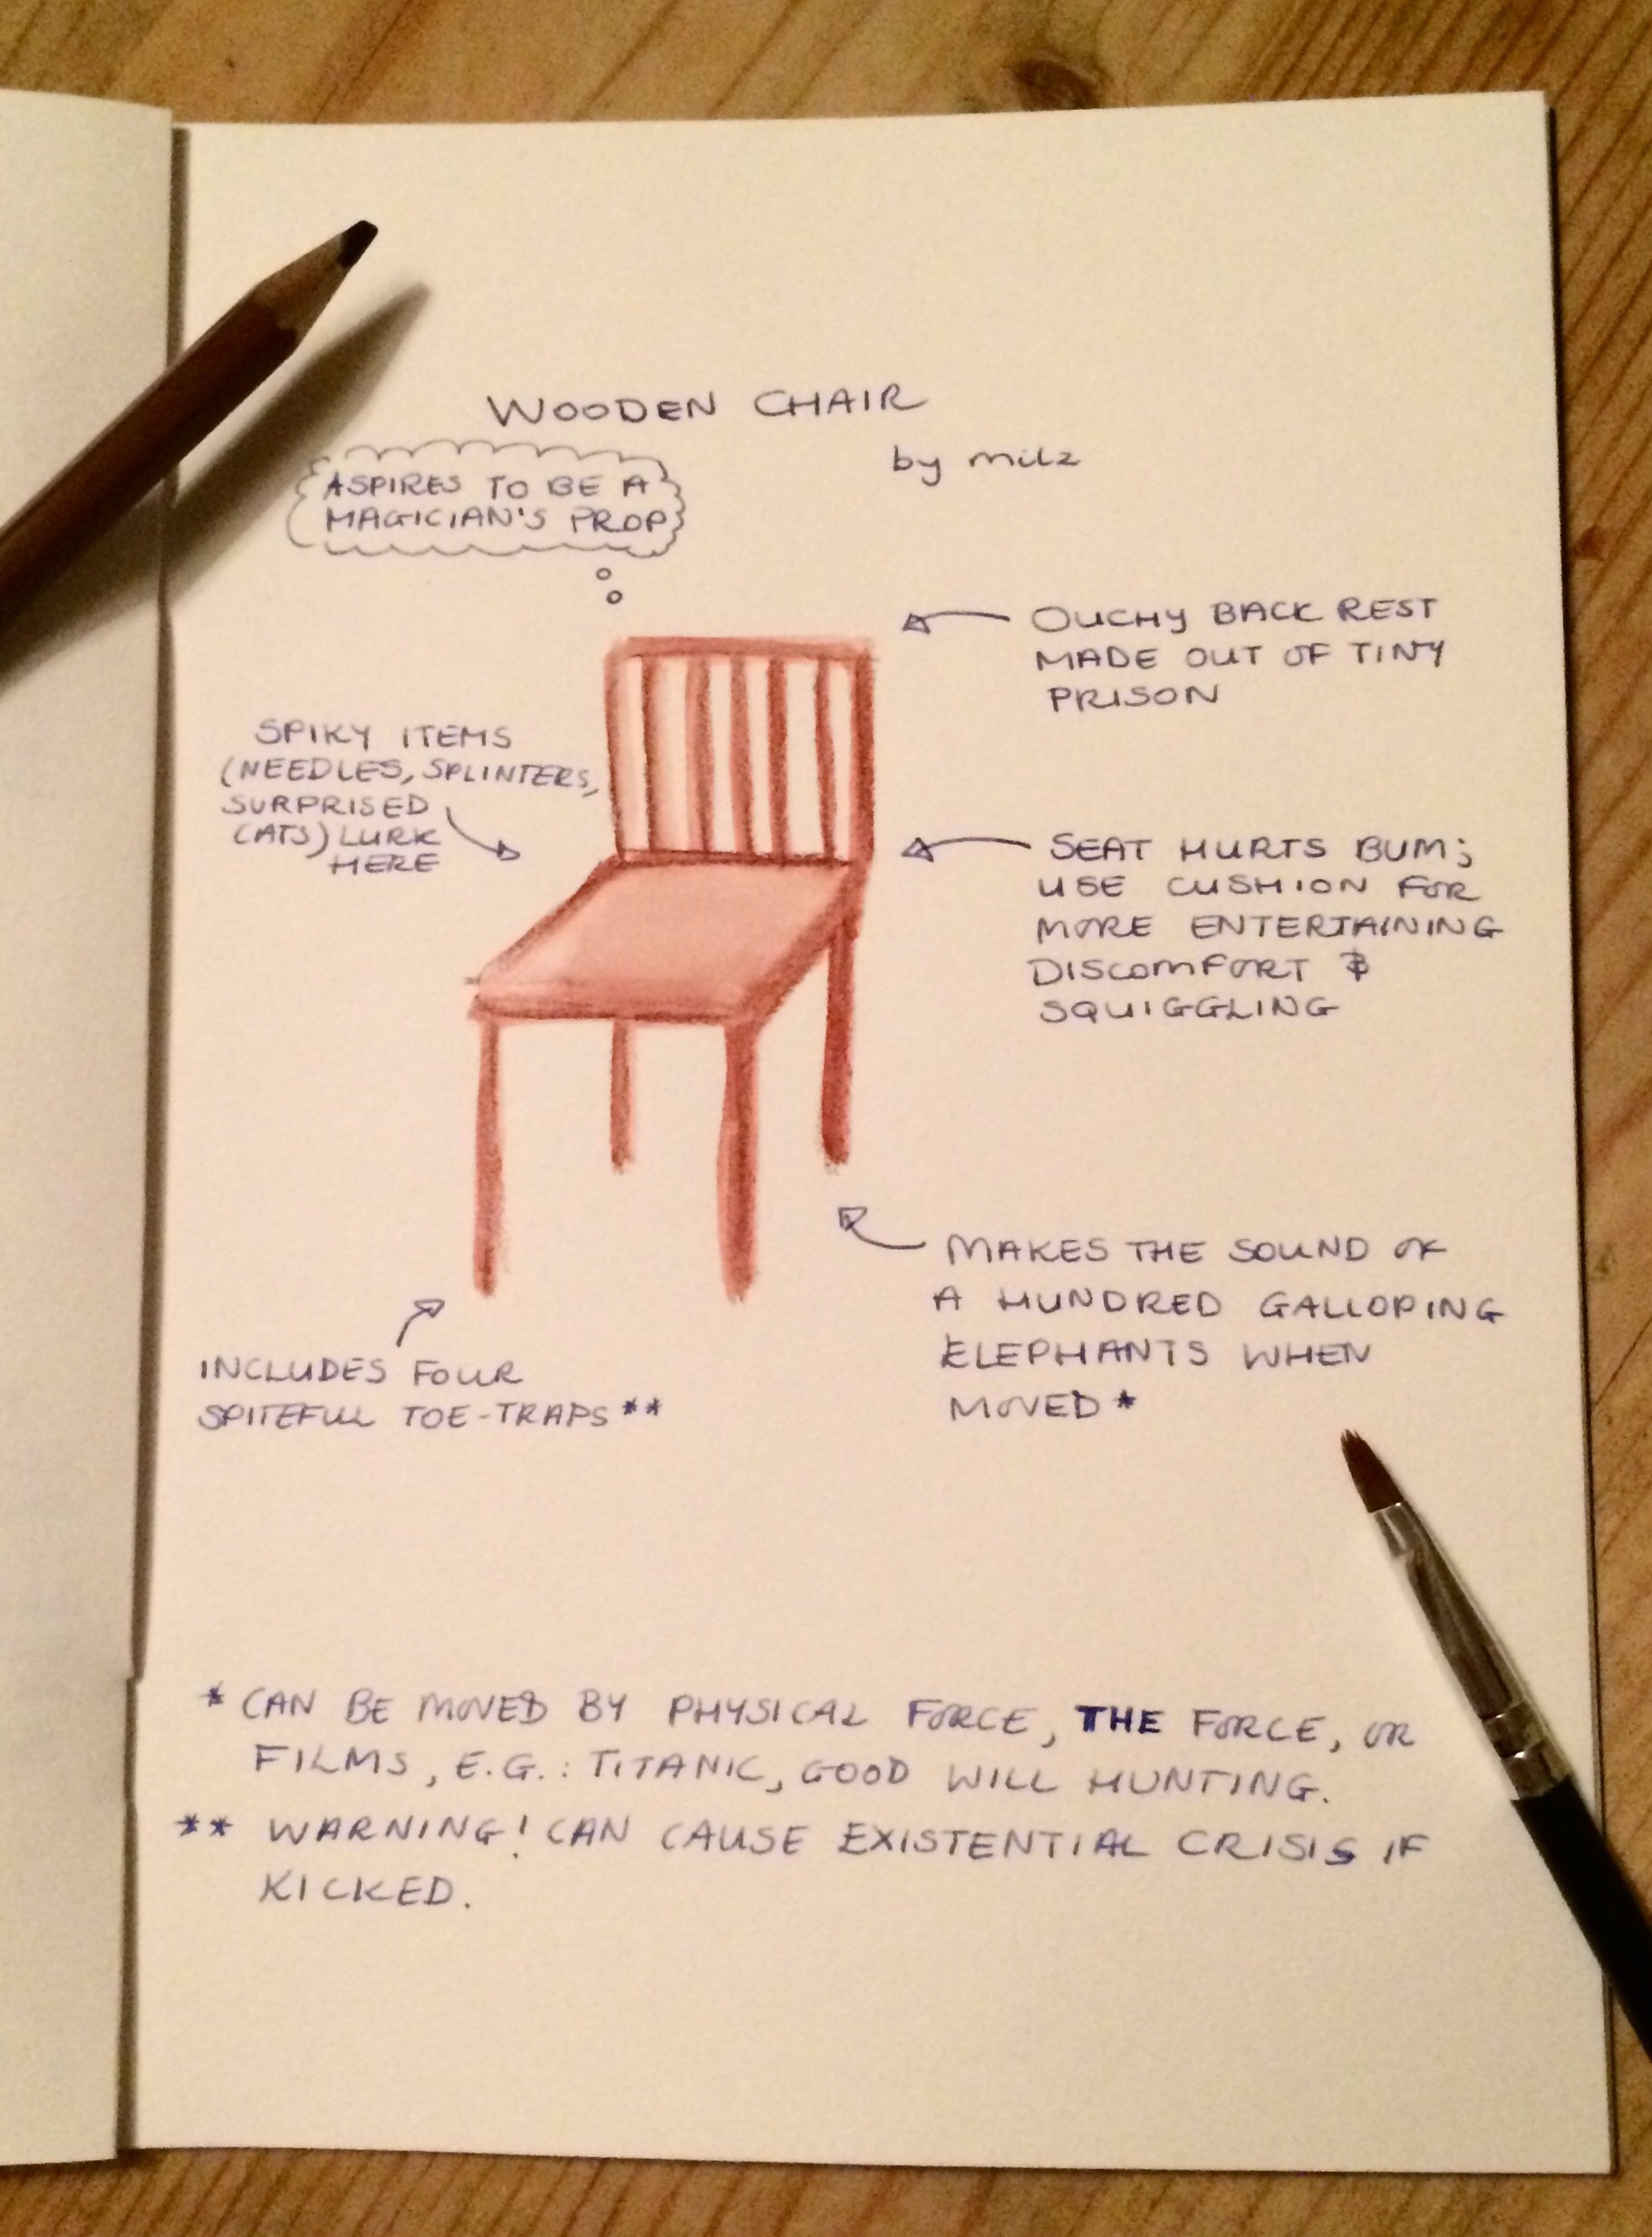 WOODEN CHAIR
by milz
ASPIRES TO BE A
MAGICIAN'S PROP
OUCHY BACK REST
MADE OUT OF TINY
PRISON
SPIKY ITEMS
(NEEDLES, SPLINTERS,
SURPRISED
CATS) LURK
HERE
SEAT HURTS BUM;
USE CUSHION FOR
MORE ENTERTAINING
DISCOMFORT &
SQUIGGLING
MAKES THE SOUND OF
A HUNDRED GALLOPING
ELEPHANTS WHEN
MOVED*
INCLUDES FOUR
SPITEFUL TOE-TRAPS**
* CAN BE MOVED BY PHYSICAL FORCE, THE FORCE, OR
FILMS, E.G.: TITANIC, GOOD WILL HUNTING.
** WARNING! CAN CAUSE EXISTENTIAL CRISIS IF
KICKED.